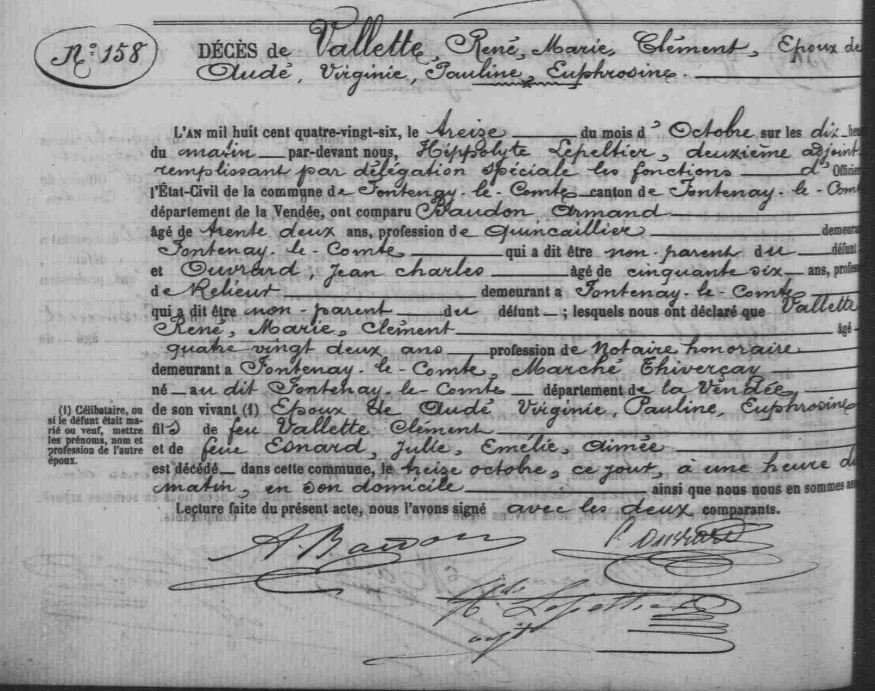 N.º 158
DÉCÈS de Vallette, René, Marie, Clément, Epoux de
Audé, Virginie, Pauline, Euphrosine.
L'AN mil huit cent quatre-vingt-six, le treize du mois d'Octobre sur les dix heu
du matin par-devant nous, Hippolyte Lepeltier, deuxième adjoint
remplissant par délégation spéciale les fonctions d'Officier
l'État-Civil de la commune de Fontenay-le-Comte canton de Fontenay-le-Comte
département de la Vendée, ont comparu Baudon, Armand
âgé de trente deux ans, profession de Quincaillier demeura
Fontenay-le-Comte qui a dit être non parent du défunt
et Ouvrard, Jean Charles âgé de cinquante six ans, profess
de Relieur demeurant a Fontenay-le-Comte
qui a dit être non-parent du défunt ; lesquels nous ont déclaré que Vallette
René, Marie, Clément âgé
quatre vingt deux ans profession de Notaire honoraire
demeurant a Fontenay-le-Comte, Marché Thiverçay
né au dit Fontenay-le-Comte département de la Vendée
de son vivant (1) Epoux de Audé Virginie, Pauline, Euphrosine
fils de feu Vallette Clément
et de feue Esnard, Julie, Emélie, Aimée
est décédé dans cette commune, le treize octobre, ce jour, à une heure du
matin, en son domicile ainsi que nous nous en sommes ass
Lecture faite du présent acte, nous l'avons signé avec les deux comparants.
(1) Célibataire, ou
si le défunt était ma-
rié ou veuf, mettre
les prénoms, nom et
profession de l'autre
époux.
A. Baudon
Ouvrard
H. Lepeltier